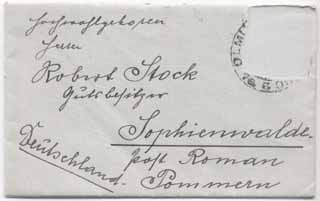 Hochwohlgeboren
Herrn
Robert Stock
Gutsbesitzer
Sophienwalde
Post Roman
Pommern
Deutschland.